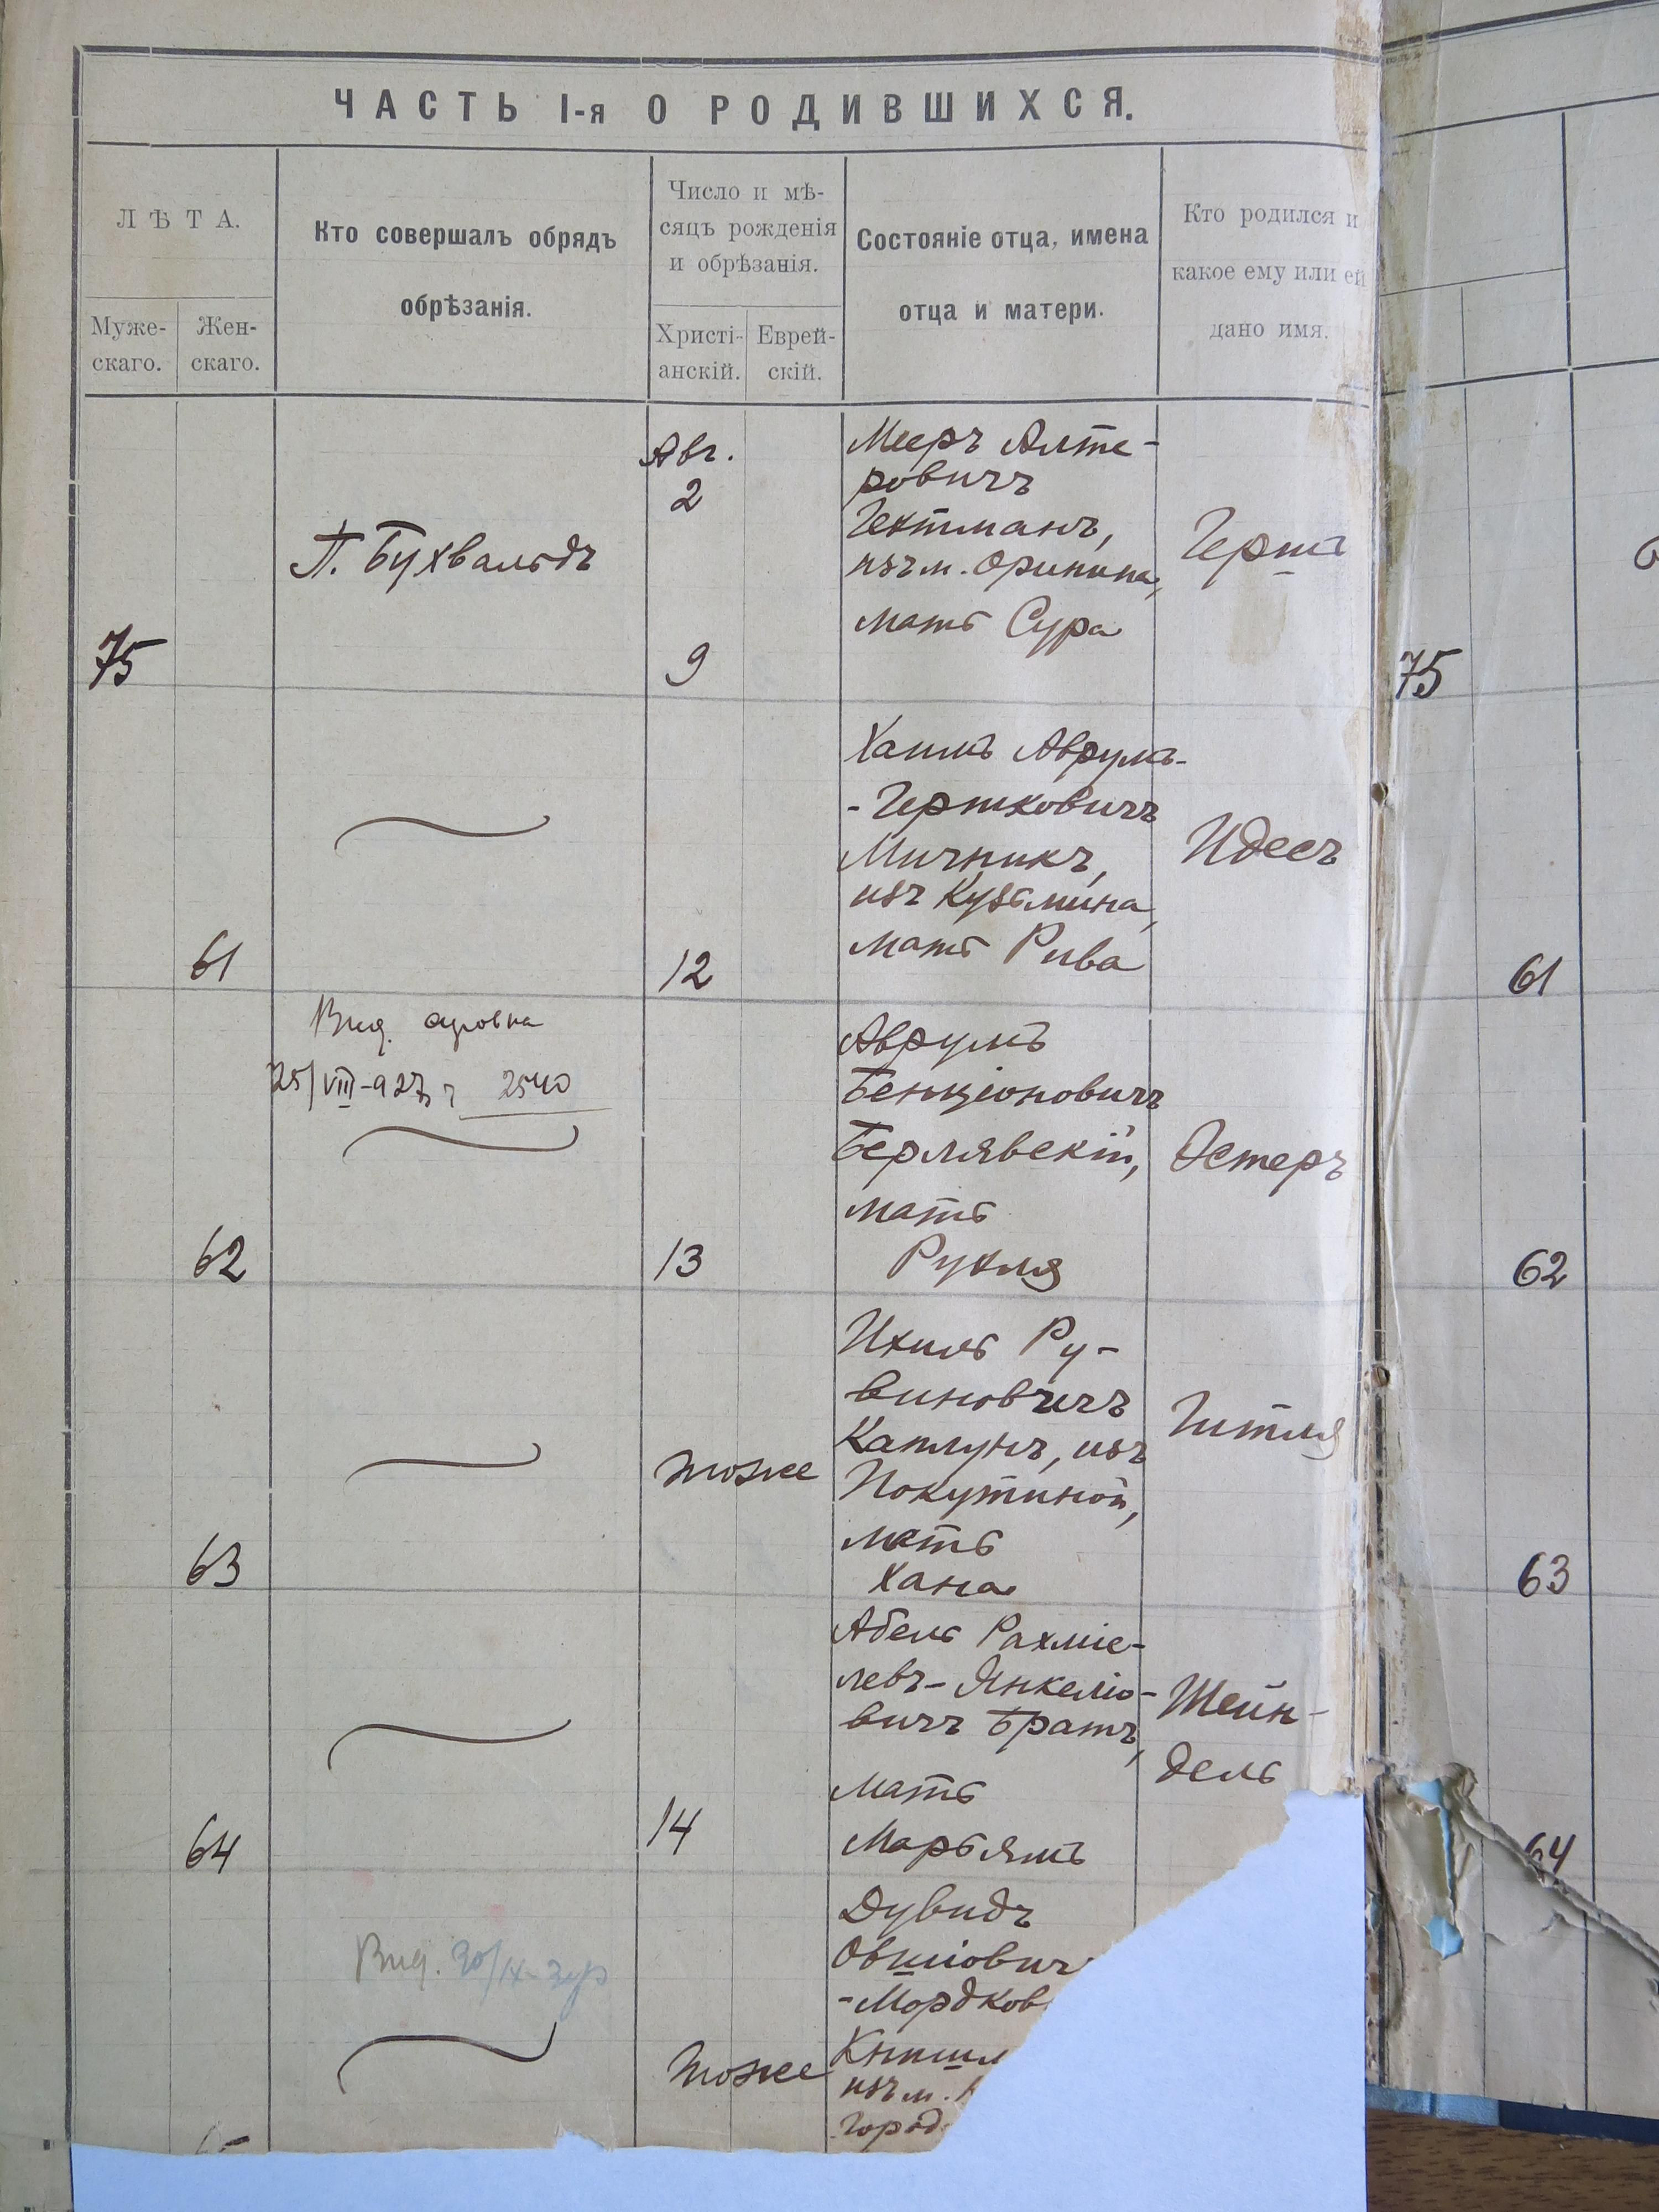 ЧАСТЬ I-я О РОДИВШИХСЯ.
ЛѢТА.
Муже-
скаго.
Жен-
скаго.
Кто совершалъ обрядъ
обрѣзанія.
Число и мѣ-
сяцъ рожденія
и обрѣзанія.
Христі-
анскій.
Еврей-
скій.
Состояніе отца, имена
отца и матери.
Кто родился и
какое ему или ей
дано имя.
75
П. Бухвальдъ
Авг.
2
9
Мееръ Алте-
ровичъ
Гехтманъ,
изъ м. Оринина,
мать Сура
Гершъ
75
61
12
Хаимъ Аврумъ-
-Гершковичъ
Мичникъ,
изъ Кузьмина,
мать Рива
Идесъ
61
Вид.
25/VIII-927 г 2540
62
13
Аврумъ
Бенціоновичъ
Берлявскій,
мать
Рухля
Эстеръ
62
63
тоже
Ихиль Ру-
виновичъ
Каплунъ, изъ
Покутиной,
мать
Хана
Гитля
63
64
14
Абель Рахміе-
левъ-Янкеліо-
вичъ Братъ,
мать
Марьямъ
Шейн-
дель
64
Вид. 30/IX
тоже
Дувидъ
Овшіовичъ
-Мордков
изъ м.
Город